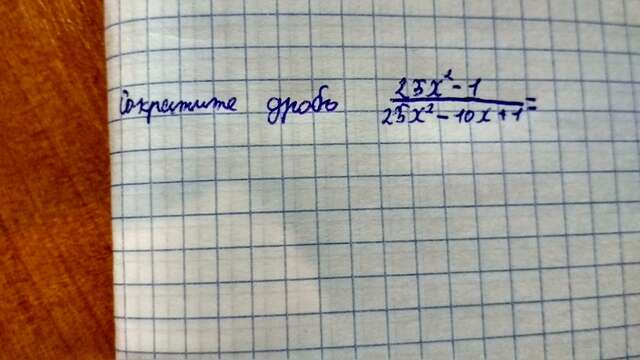 Сократите дробь (25x²-1)/(25x²-10x+1)=